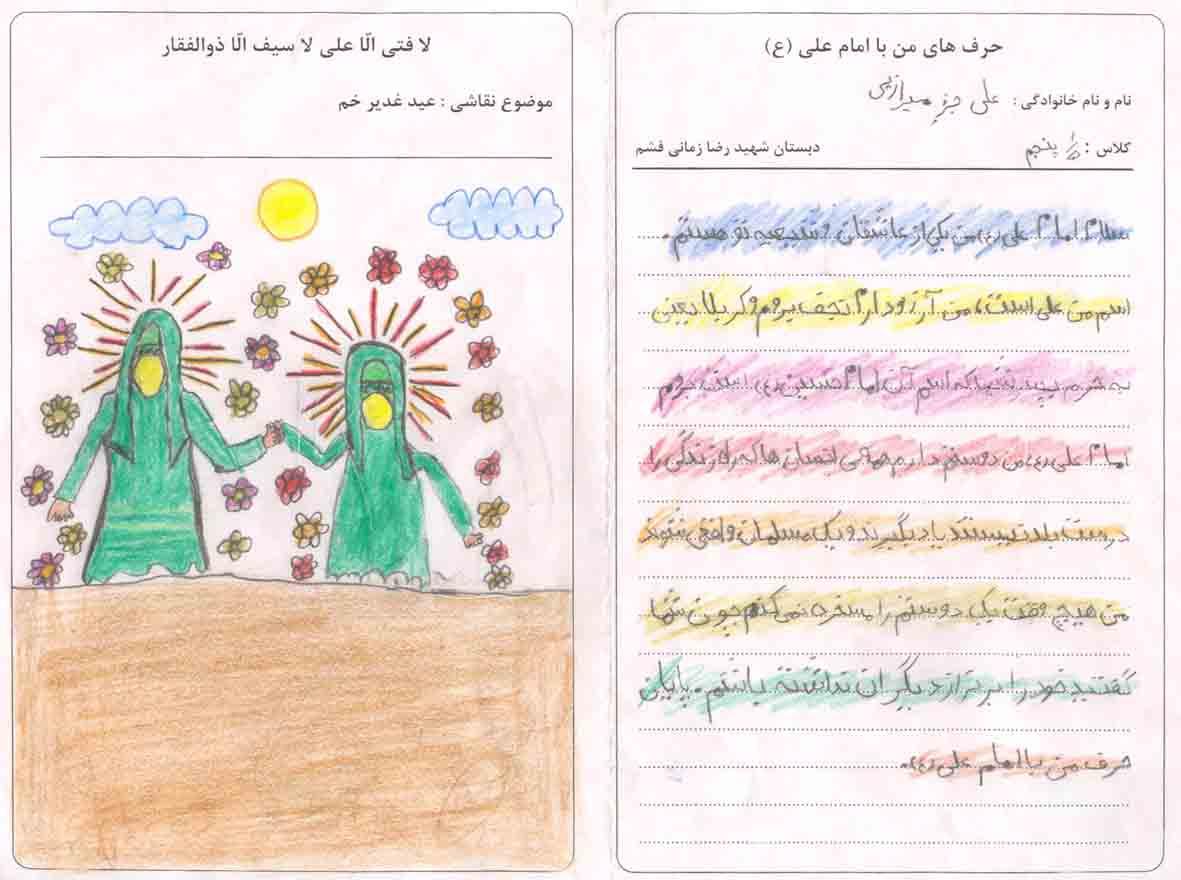 حرف های من با امام علی (ع)
نام و نام خانوادگی : علی
کلاس : پنجم
دبستان شهید رضا زمانی قشم
سلام امام علی (ع) من یکی از عاشقان و شیعیه تو هستم.
اسم من علی است، من آرزو دارم نجف بروم و کربلا بعین
به حرم پسرتنها که اسم آن امام حسین (ع) است بروم
امام علی (ع) من دوستم دارم همه ی انسان ها که راه زندگی را
درست بلد نیستند یاد بگیرند و یک مسلمان واقعی شوند
من هیچ وقت یک دوستم را مسخره نمی کنم چون شما
گفتید خود را برتر از دیگران نداشته باشم. پایان
حرف من با امام علی (ع).
لا فتی الّا علی لا سیف الّا ذوالفقار
موضوع نقاشی : عید غدیر خم